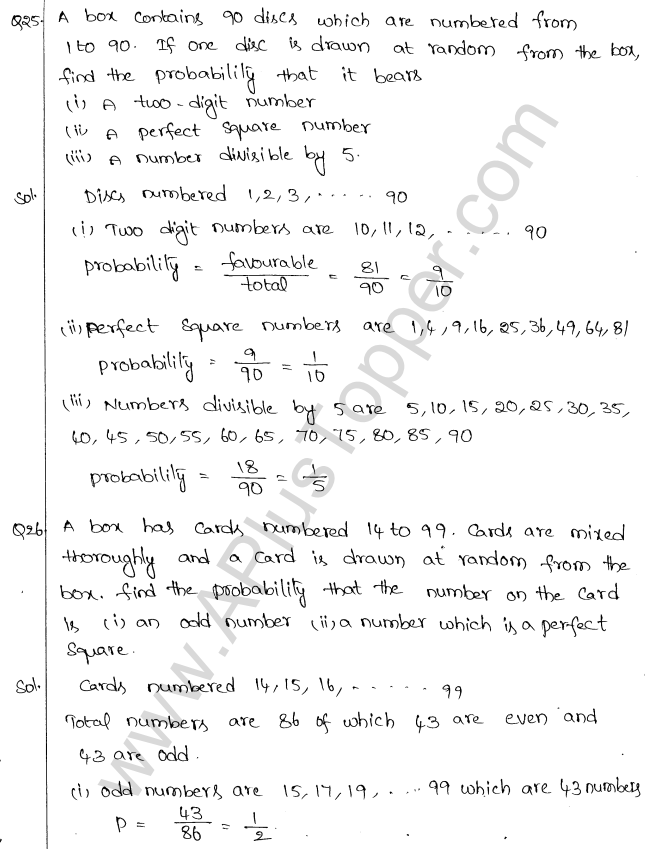 Q25. A box contains 90 discs which are numbered from
1 to 90. If one disc is drawn at random from the box,
find the probability that it bears
(i) A two-digit number
(ii A perfect square number
(iii) A number divisible by 5.
Sol. Discs numbered 1,2,3, ...... 90
(i) Two digit numbers are 10,11,12, ...... 90
probability = favourable/total = 81/90 = 9/10
(ii) perfect square numbers are 1,4,9,16,25,36,49,64,81
probability = 9/90 = 1/10
(iii) Numbers divisible by 5 are 5,10,15,20,25,30,35,
40,45,50,55,60,65,70,75,80,85,90
probability = 18/90 = 1/5
Q26 A box has cards numbered 14 to 99. Cards are mixed
thoroughly and a card is drawn at random from the
box. find the probability that the number on the card
is (i) an odd number (ii) a number which is a perfect
square.
Sol. Cards numbered 14,15,16, ...... 99
Total numbers are 86 of which 43 are even and
43 are odd.
(i) odd numbers are 15,17,19, .... 99 which are 43 numbers
P = 43/86 = 1/2
www.APlusTopper.com